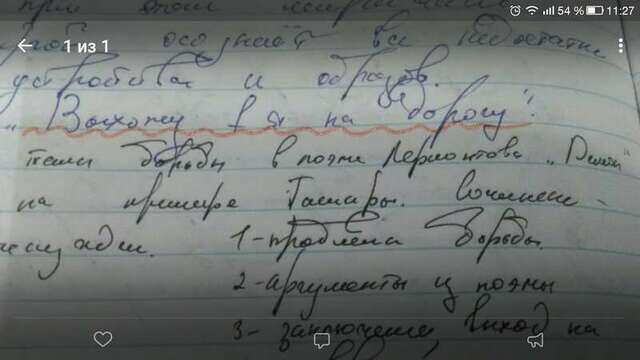 54 % 11:27
1 из 1
при этом
осознаёт все недостатки
устройства и образов.
„Выхожу в я на дорогу"!
тема борьбы в поэмы Лермонтова „
на примере Тамары. Сочинение -
1-проблема борьбы.
2-аргументы из поэмы
3- заключение выход на